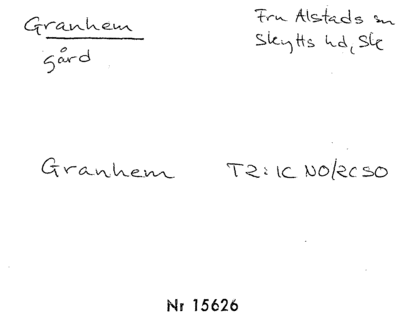 Granhem
gård
Fru Alstads sn
Skytts hd, Sk
Granhem T2: 1C NO/2C SO
Nr 15626